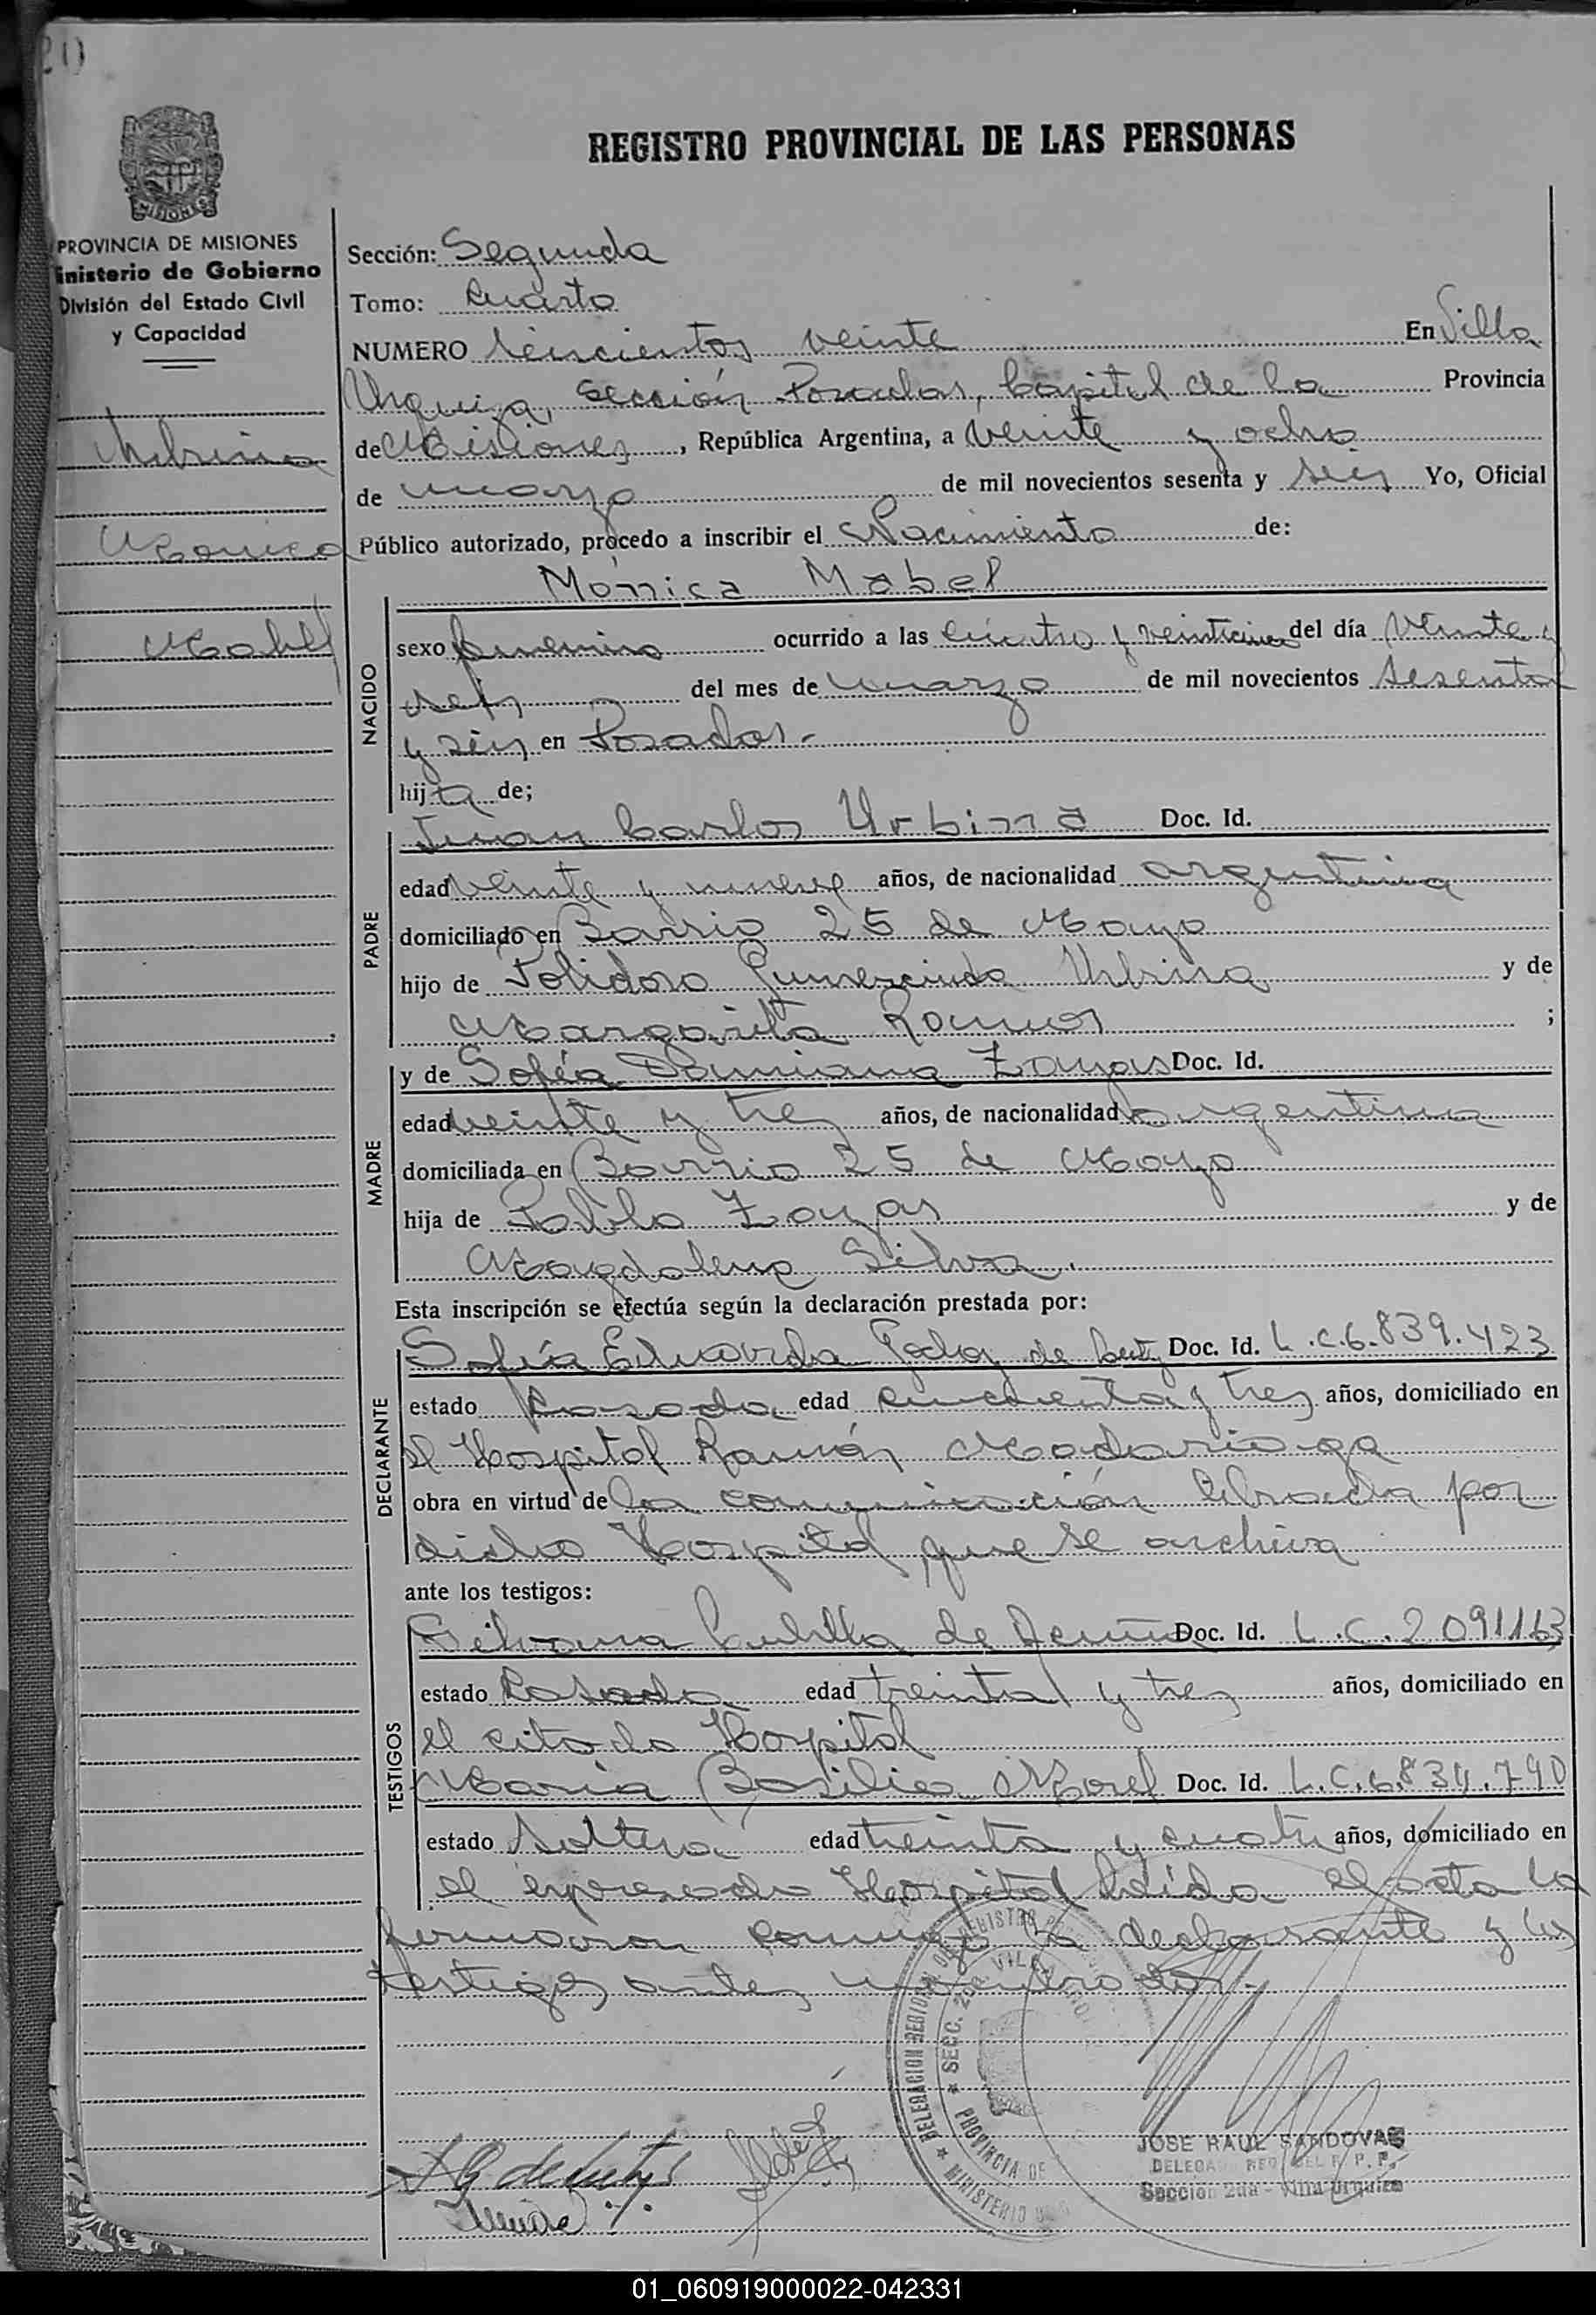 20
REGISTRO PROVINCIAL DE LAS PERSONAS
MISIONES
PROVINCIA DE MISIONES
inisterio de Gobierno
División del Estado Civil
y Capacidad
Urbina
Mónica
Mabel
Sección: Segunda
Tomo: Cuarto
NUMERO Seiscientos veinte En Villa
Urquiza, Sección Posadas, Capital de la Provincia
de Misiones, República Argentina, a veinte y ocho
de marzo de mil novecientos sesenta y seis Yo, Oficial
Público autorizado, procedo a inscribir el Nacimiento de:
Mónica Mabel
NACIDO
sexo femenino ocurrido a las cuatro y veinticinco del día veinte y
seis del mes de marzo de mil novecientos sesenta
y seis en Posadas.-
hija de;
PADRE
Juan Carlos Urbina Doc. Id.
edad veinte y nueve años, de nacionalidad argentina
domiciliado en Barrio 25 de Mayo
hijo de Polidoro Gumercindo Urbina y de
Margarita Ramos ;
MADRE
y de Sofía Damiana Zayas Doc. Id.
edad veinte y tres años, de nacionalidad argentina
domiciliada en Barrio 25 de Mayo
hija de Pablo Zayas y de
Magdalena Silva.
Esta inscripción se efectúa según la declaración prestada por:
DECLARANTE
Sofía Eduarda de Doc. Id. L.C.6.839.423
estado Casada edad cincuenta y tres años, domiciliado en
el Hospital Ramón Madariaga
obra en virtud de la comunicación librada por
dicho Hospital que se archiva
ante los testigos:
TESTIGOS
Silvana de Doc. Id. L.C.2091163
estado Casada edad treinta y tres años, domiciliado en
el citado Hospital
María Basilia Morel Doc. Id. L.C.6.834.790
estado Soltera edad treinta y cuatro años, domiciliado en
el expresado Hospital leída el acta la
firmaron conmigo la declarante y los
testigos antes nombrados.-
DELEGACION REGISTRO
SECC. 2da VILLA
PROVINCIA DE
MINISTERIO
JOSE RAUL SANDOVAL
DELEGA REG DEL R. P. P.
Sección 2da - Villa Urquiza
01_060919000022-042331